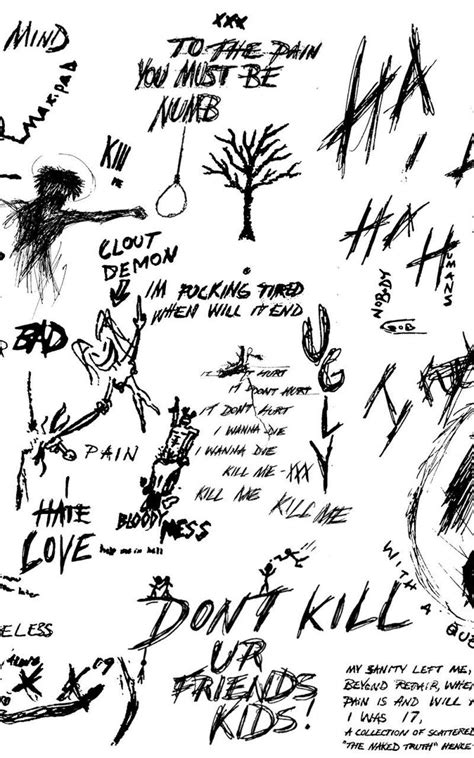 XXX
MIND
TO THE PAIN
YOU MUST BE
NUMB
MAXIPAD
HA
HA
HA
HUMANS
NOBODY
CLOUT
DEMON
I'M FUCKING TIRED
WHEN WILL IT END
BAD
UGLY
IT DON'T HURT
IT DON'T HURT
I WANNA DIE
I WANNA DIE
KILL ME - XXX
KILL ME
KILL ME
PAIN
I
HATE
LOVE
help me in hell
BLOODY
MESS
DON'T KILL
UR
FRIENDS
KIDS!
WITH A
ELESS
X X
MY SANITY LEFT ME,
BEYOND REPAIR, WHE
PAIN IS AND WILL
I WAS 17,
A COLLECTION OF SCATTERED
"THE NAKED TRUTH" HENCE